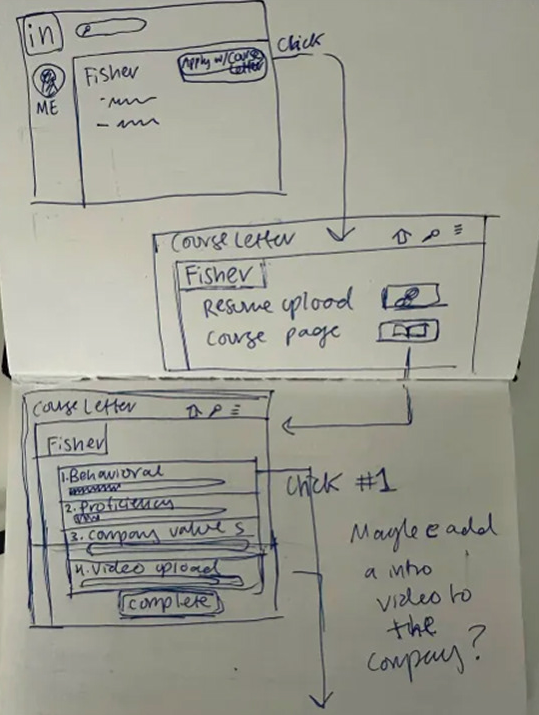 in
Apply w/Course
Letter
Click
Fisher
ME
Course Letter
Fisher
Resume upload
Course page
Course Letter
Fisher
1. Behavioral
2. Proficiency
3. Company values
4. Video upload
Complete
Click #1
Maybe add
a intro
video to
the
Company?